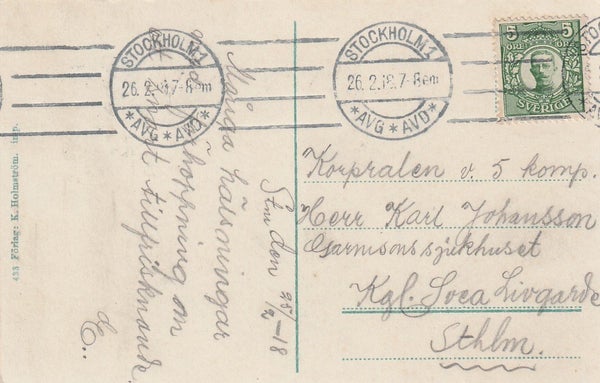 STOCKHOLM 1
26.2.18.7-8em
* AVG * AVD *
STOCKHOLM 1
26.2.18.7-8em
* AVG * AVD *
5 5
ÖRE ÖRE
SVERIGE
Sthm den 25/2-18
Många hälsningar
hoppning om
tillfrisknande.
E..
Korpralen v. 5 komp.
Herr Karl Johansson
Garnisonssjukhuset
Kgl. Svea Livgarde
Sthlm.
433 Förlag: K. Holmström. imp.